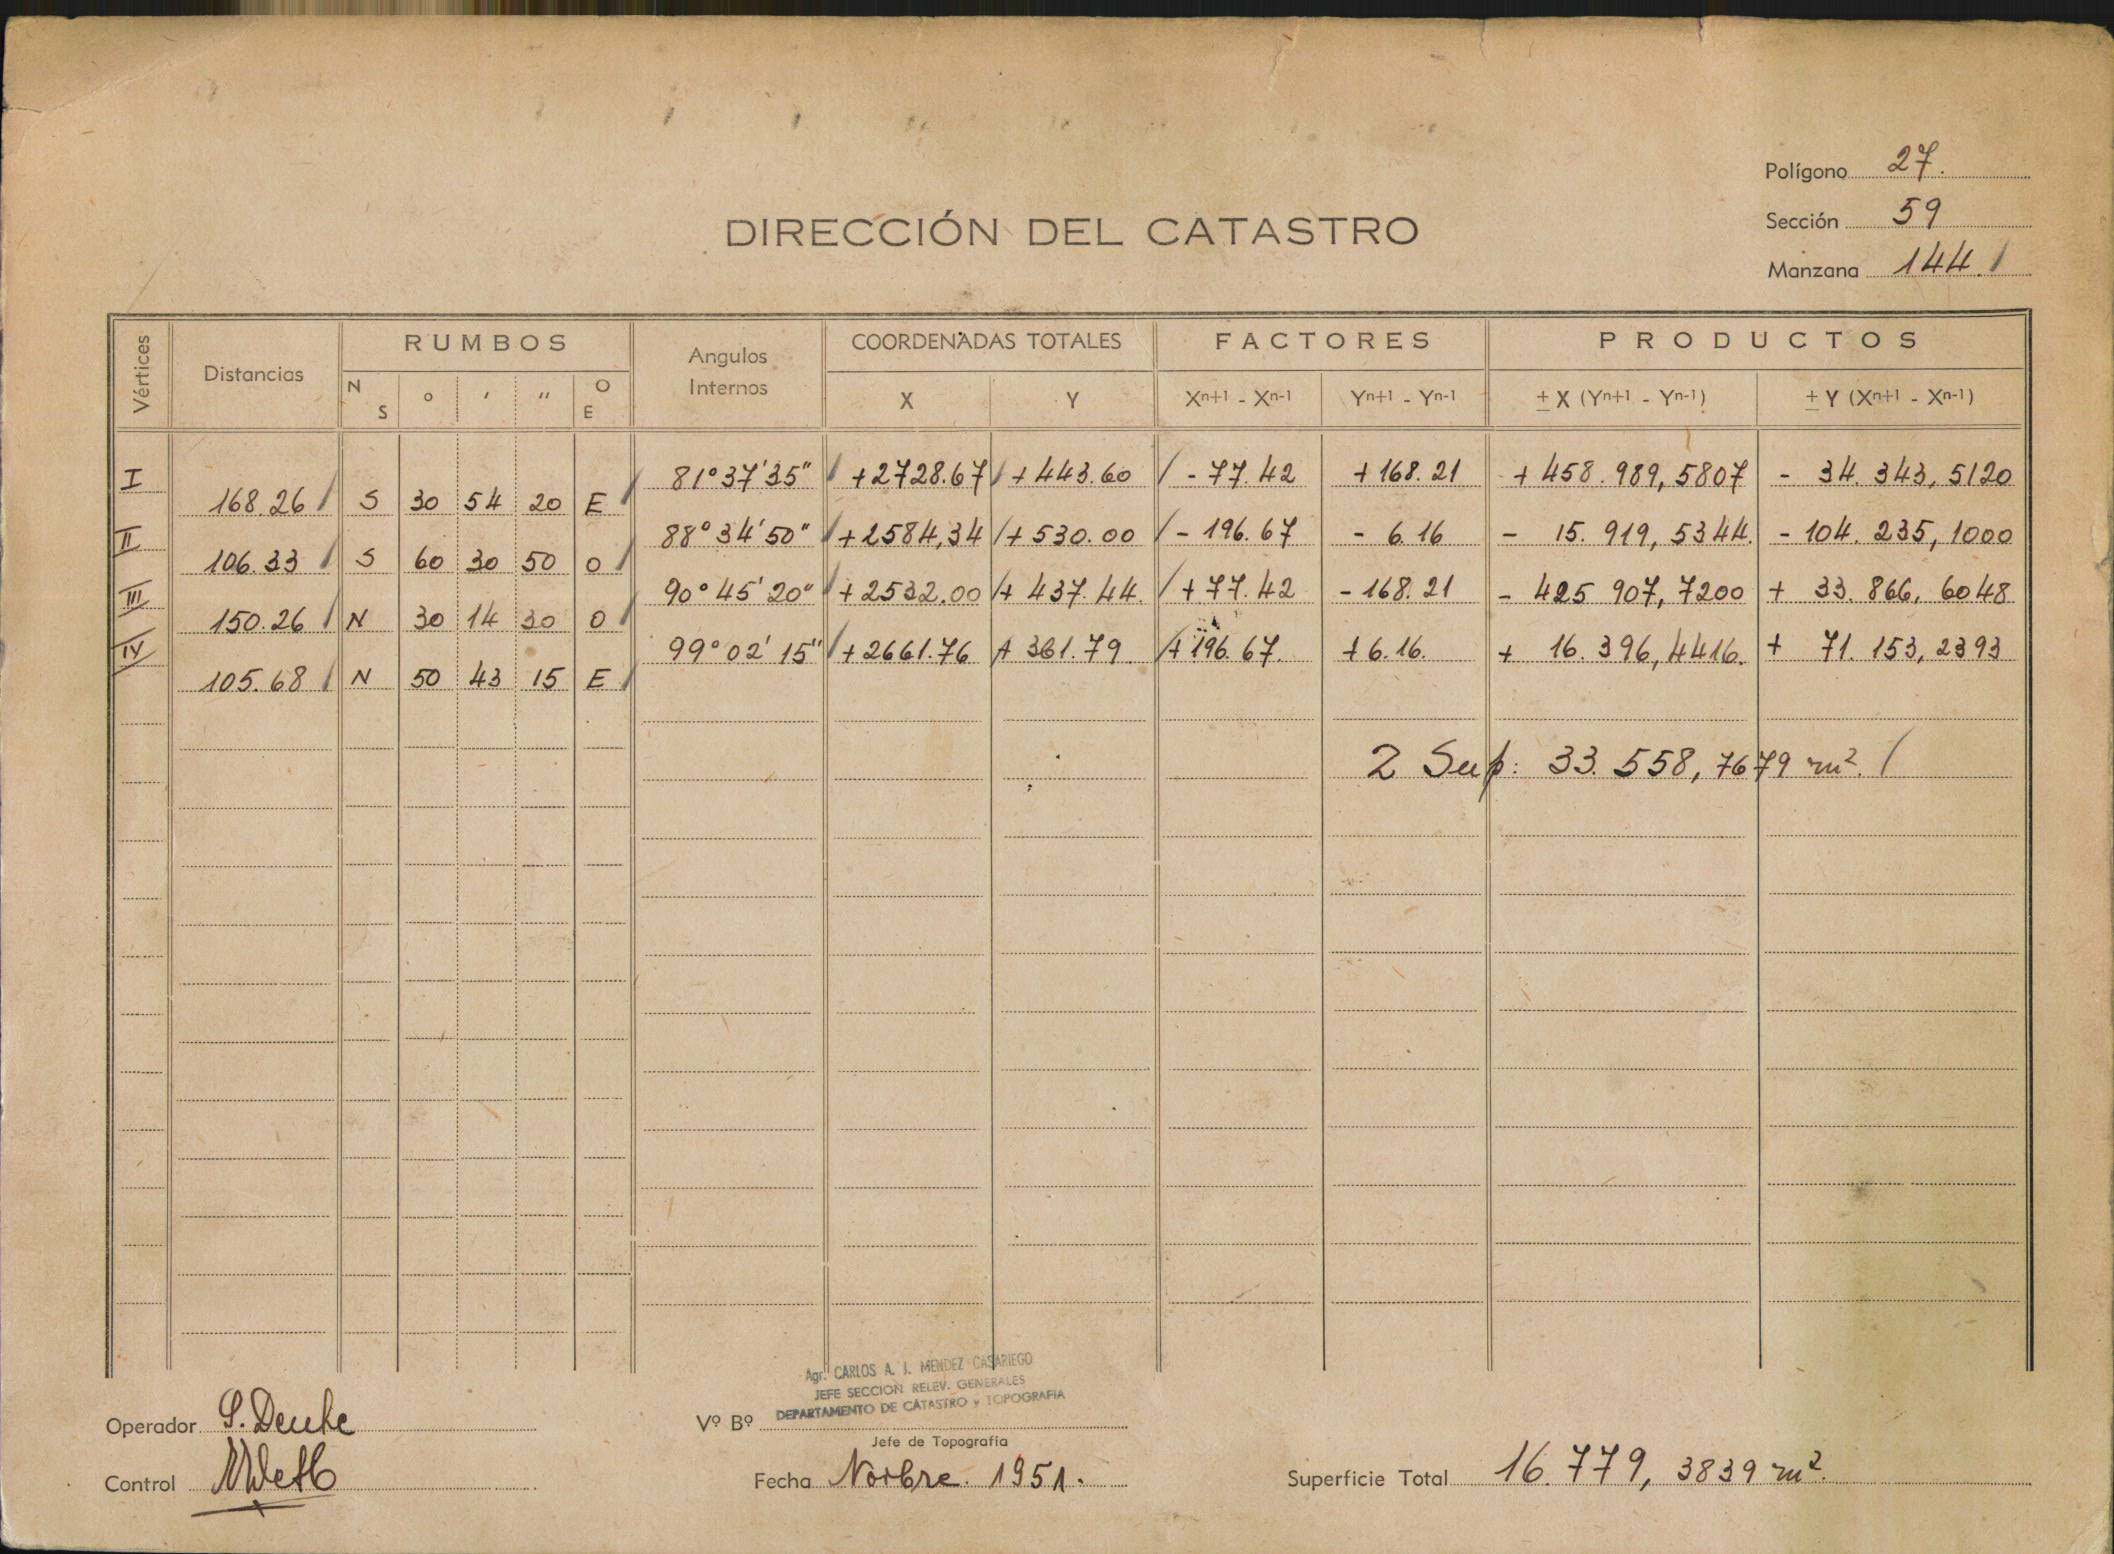 Polígono 27.
Sección 59
Manzana 144.
DIRECCIÓN DEL CATASTRO
Vértices Distancias RUMBOS Angulos Internos COORDENADAS TOTALES FACTORES PRODUCTOS
N S ° ' " O E X Y Xⁿ⁺¹ - Xⁿ⁻¹ Yⁿ⁺¹ - Yⁿ⁻¹ ± X (Yⁿ⁺¹ - Yⁿ⁻¹) ± Y (Xⁿ⁺¹ - Xⁿ⁻¹)
I 81°37'35" +2728.67 +443.60 -77.42 +168.21 +458.989,5807 - 34.343,5120
168.26 S 30 54 20 E
II 88°34'50" +2584,34 +530.00 -196.67 - 6.16 - 15.919,5344. -104.235,1000
106.33 S 60 30 50 O
III 90°45'20" +2532.00 + 437.44. +77.42 -168.21 - 425 907,7200 + 33.866,6048
150.26 N 30 14 30 O
IV 99°02'15" +2661.76 + 361.79 +196.67. +6.16. + 16.396,4416. + 71.153,2393
105.68 N 50 43 15 E
2 Sup: 33.558,7679 m².
Agr. CARLOS A. J. MENDEZ CASARIEGO
JEFE SECCION RELEV. GENERALES
DEPARTAMENTO DE CATASTRO y TOPOGRAFIA
Operador Vº Bº
Jefe de Topografía
Control Fecha Novbre. 1951. Superficie Total 16.779,3839 m².